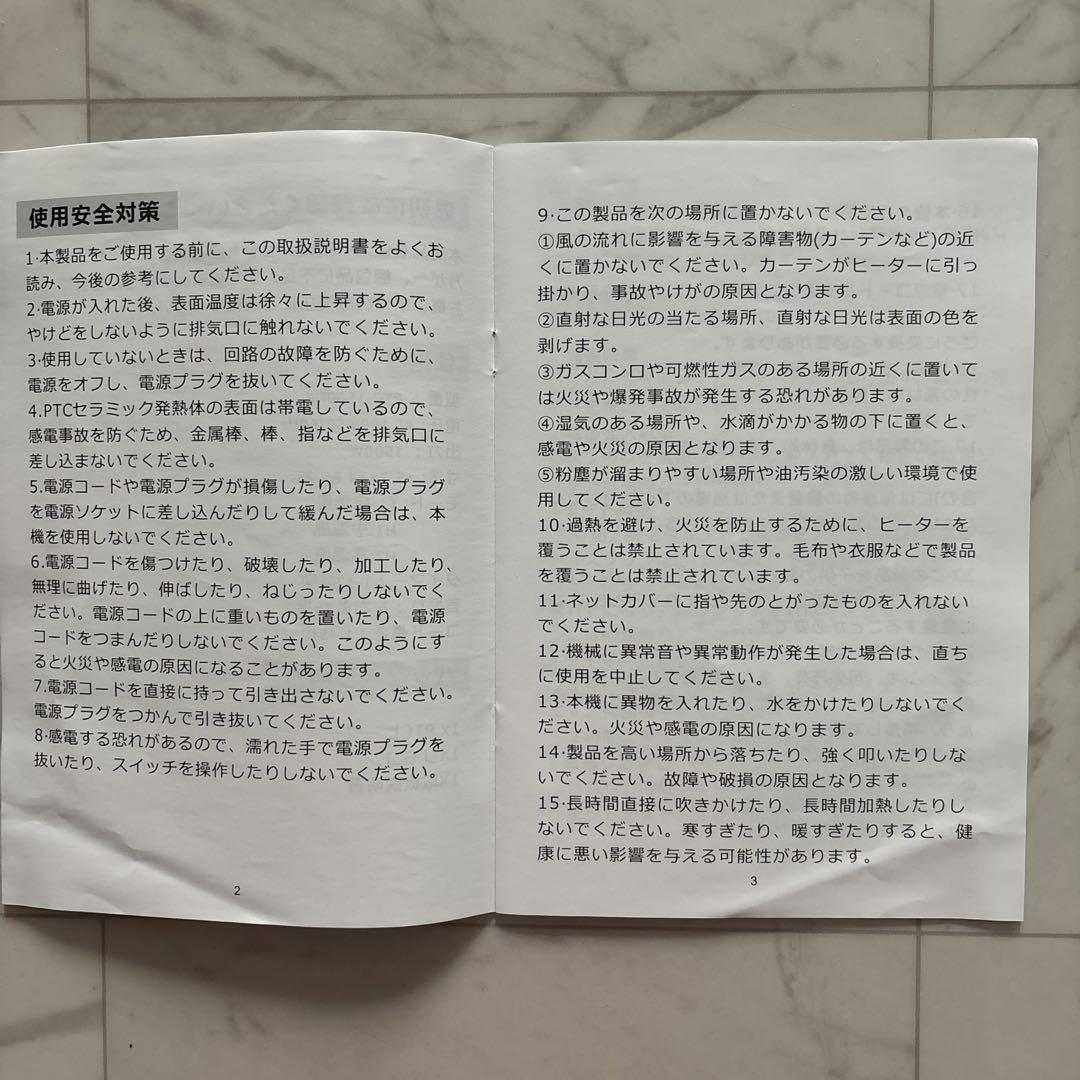 使用安全対策
1·本製品をご使用する前に、この取扱説明書をよくお
読み、今後の参考にしてください。
2·電源が入れた後、表面温度は徐々に上昇するので、
やけどをしないように排気口に触れないでください。
3·使用していないときは、回路の故障を防ぐために、
電源をオフし、電源プラグを抜いてください。
4.PTCセラミック発熱体の表面は帯電しているので、
感電事故を防ぐため、金属棒、棒、指などを排気口に
差し込まないでください。
5.電源コードや電源プラグが損傷したり、電源プラグ
を電源ソケットに差し込んだりして緩んだ場合は、本
機を使用しないでください。
6.電源コードを傷つけたり、破壊したり、加工したり、
無理に曲げたり、伸ばしたり、ねじったりしないでく
ださい。電源コードの上に重いものを置いたり、電源
コードをつまんだりしないでください。このようにす
ると火災や感電の原因になることがあります。
7.電源コードを直接に持って引き出さないでください。
電源プラグをつかんで引き抜いてください。
8·感電する恐れがあるので、濡れた手で電源プラグを
抜いたり、スイッチを操作したりしないでください。
2
9·この製品を次の場所に置かないでください。
①風の流れに影響を与える障害物(カーテンなど)の近
くに置かないでください。カーテンがヒーターに引っ
掛かり、事故やけがの原因となります。
②直射な日光の当たる場所、直射な日光は表面の色を
剥げます。
③ガスコンロや可燃性ガスのある場所の近くに置いて
は火災や爆発事故が発生する恐れがあります。
④湿気のある場所や、水滴がかかる物の下に置くと、
感電や火災の原因となります。
⑤粉塵が溜まりやすい場所や油汚染の激しい環境で使
用してください。
10·過熱を避け、火災を防止するために、ヒーターを
覆うことは禁止されています。毛布や衣服などで製品
を覆うことは禁止されています。
11·ネットカバーに指や先のとがったものを入れない
でください。
12·機械に異常音や異常動作が発生した場合は、直ち
に使用を中止してください。
13·本機に異物を入れたり、水をかけたりしないでく
ださい。火災や感電の原因になります。
14·製品を高い場所から落ちたり、強く叩いたりしな
いでください。故障や破損の原因となります。
15·長時間直接に吹きかけたり、長時間加熱したりし
ないでください。寒すぎたり、暖すぎたりすると、健
康に悪い影響を与える可能性があります。
3